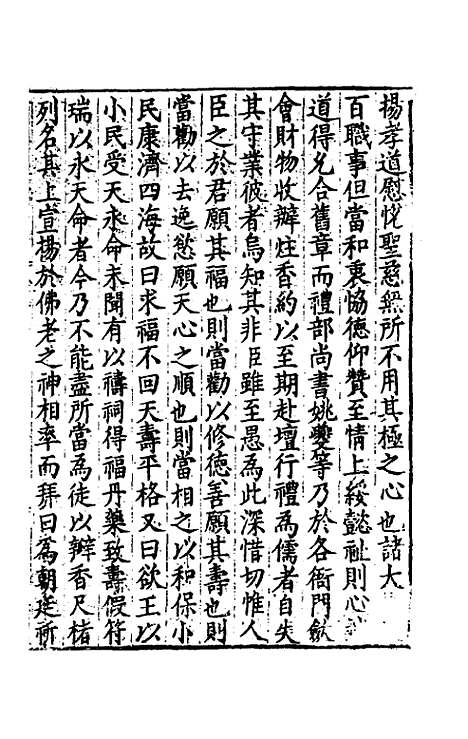 揚孝道慰悅聖慈無所不用其極之心也諸大
百職事但當和衷協德仰贊至情上綏懿祉則心
道得允合舊章而禮部尚書姚夔等乃於各衙門歛
會財物收辦炷香約以至期赴壇行禮為儒者自失
其守業彼者烏知其非臣雖至愚為此深惜切惟人
臣之於君願其福也則當勸以修德善願其壽也則
當勸以去逸慾願天心之順也則當相之以和保小
民康濟四海故曰求福不回天壽平格又曰欲王以
小民受天永命未聞有以禱祠得福丹藥致壽假符
瑞以永天命者今乃不能盡所當為徒以辦香尺楮
列名其上宣揚於佛老之神相率而拜曰為朝廷祈